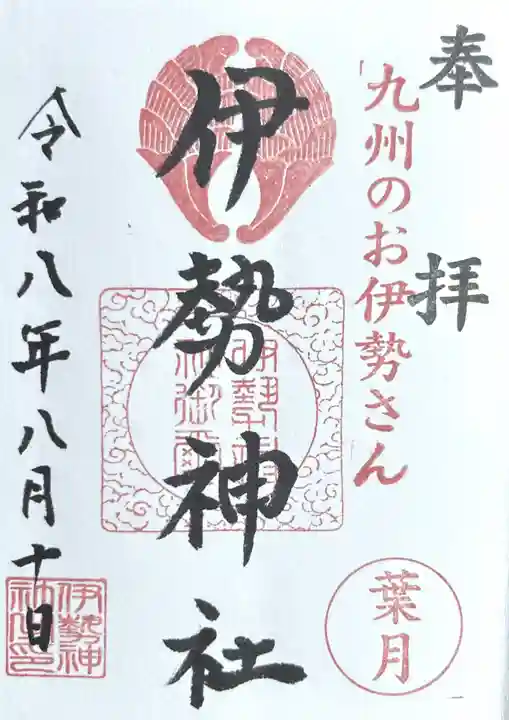 奉拝
「九州のお伊勢さん
葉月
伊勢神社
伊勢神
令和八年八月十日
伊勢神